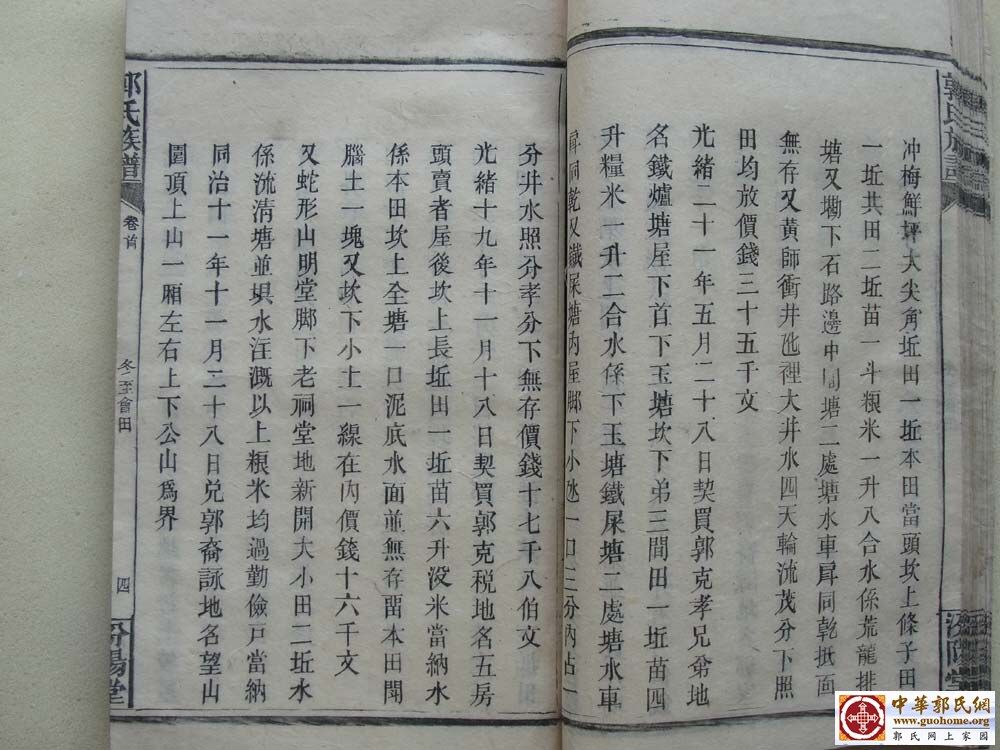 郭氏族譜
冲梅鮮坪大尖角坵田一坵本田當頭坎上條子田
一坵共田二坵苗一斗粮米一升八合水係荒龍排
塘又墈下石路邊中間塘二處塘水車戽同乾抵面
無存又黃師衝井氹裡大井水四天輪流茂分下照
田均放價錢三十五千文
光緒二十一年五月二十八日契買郭克孝兄弟地
名鐵爐塘屋下首下玉塘坎下弟三間田一坵苗四
升糧米一升二合水係下玉塘鐵屎塘二處塘水車
戽同乾又鐵屎塘內屋脚下小氹一口三分內占一
汾陽堂
分井水照分孝分下無存價錢十七千八伯文
光緒十九年十一月十八日契買郭克税地名五房
頭賣者屋後坎上長坵田一坵苗六升没米當納水
係本田坎上全塘一口泥底水面並無存留本田開
腦土一塊又坎下小土一線在內價錢十六千文
又蛇形山明堂脚下老祠堂地新開大小田二坵水
係流清塘並垻水注溉以上粮米均過勤儉戸當納
同治十一年十一月二十八日兑郭裔詠地名望山
園頂上山一厢左右上下公山為界
郭氏族譜
卷首
冬至會田
四
汾陽堂
中華郭氏網
www.guohome.org
郭氏网上家园